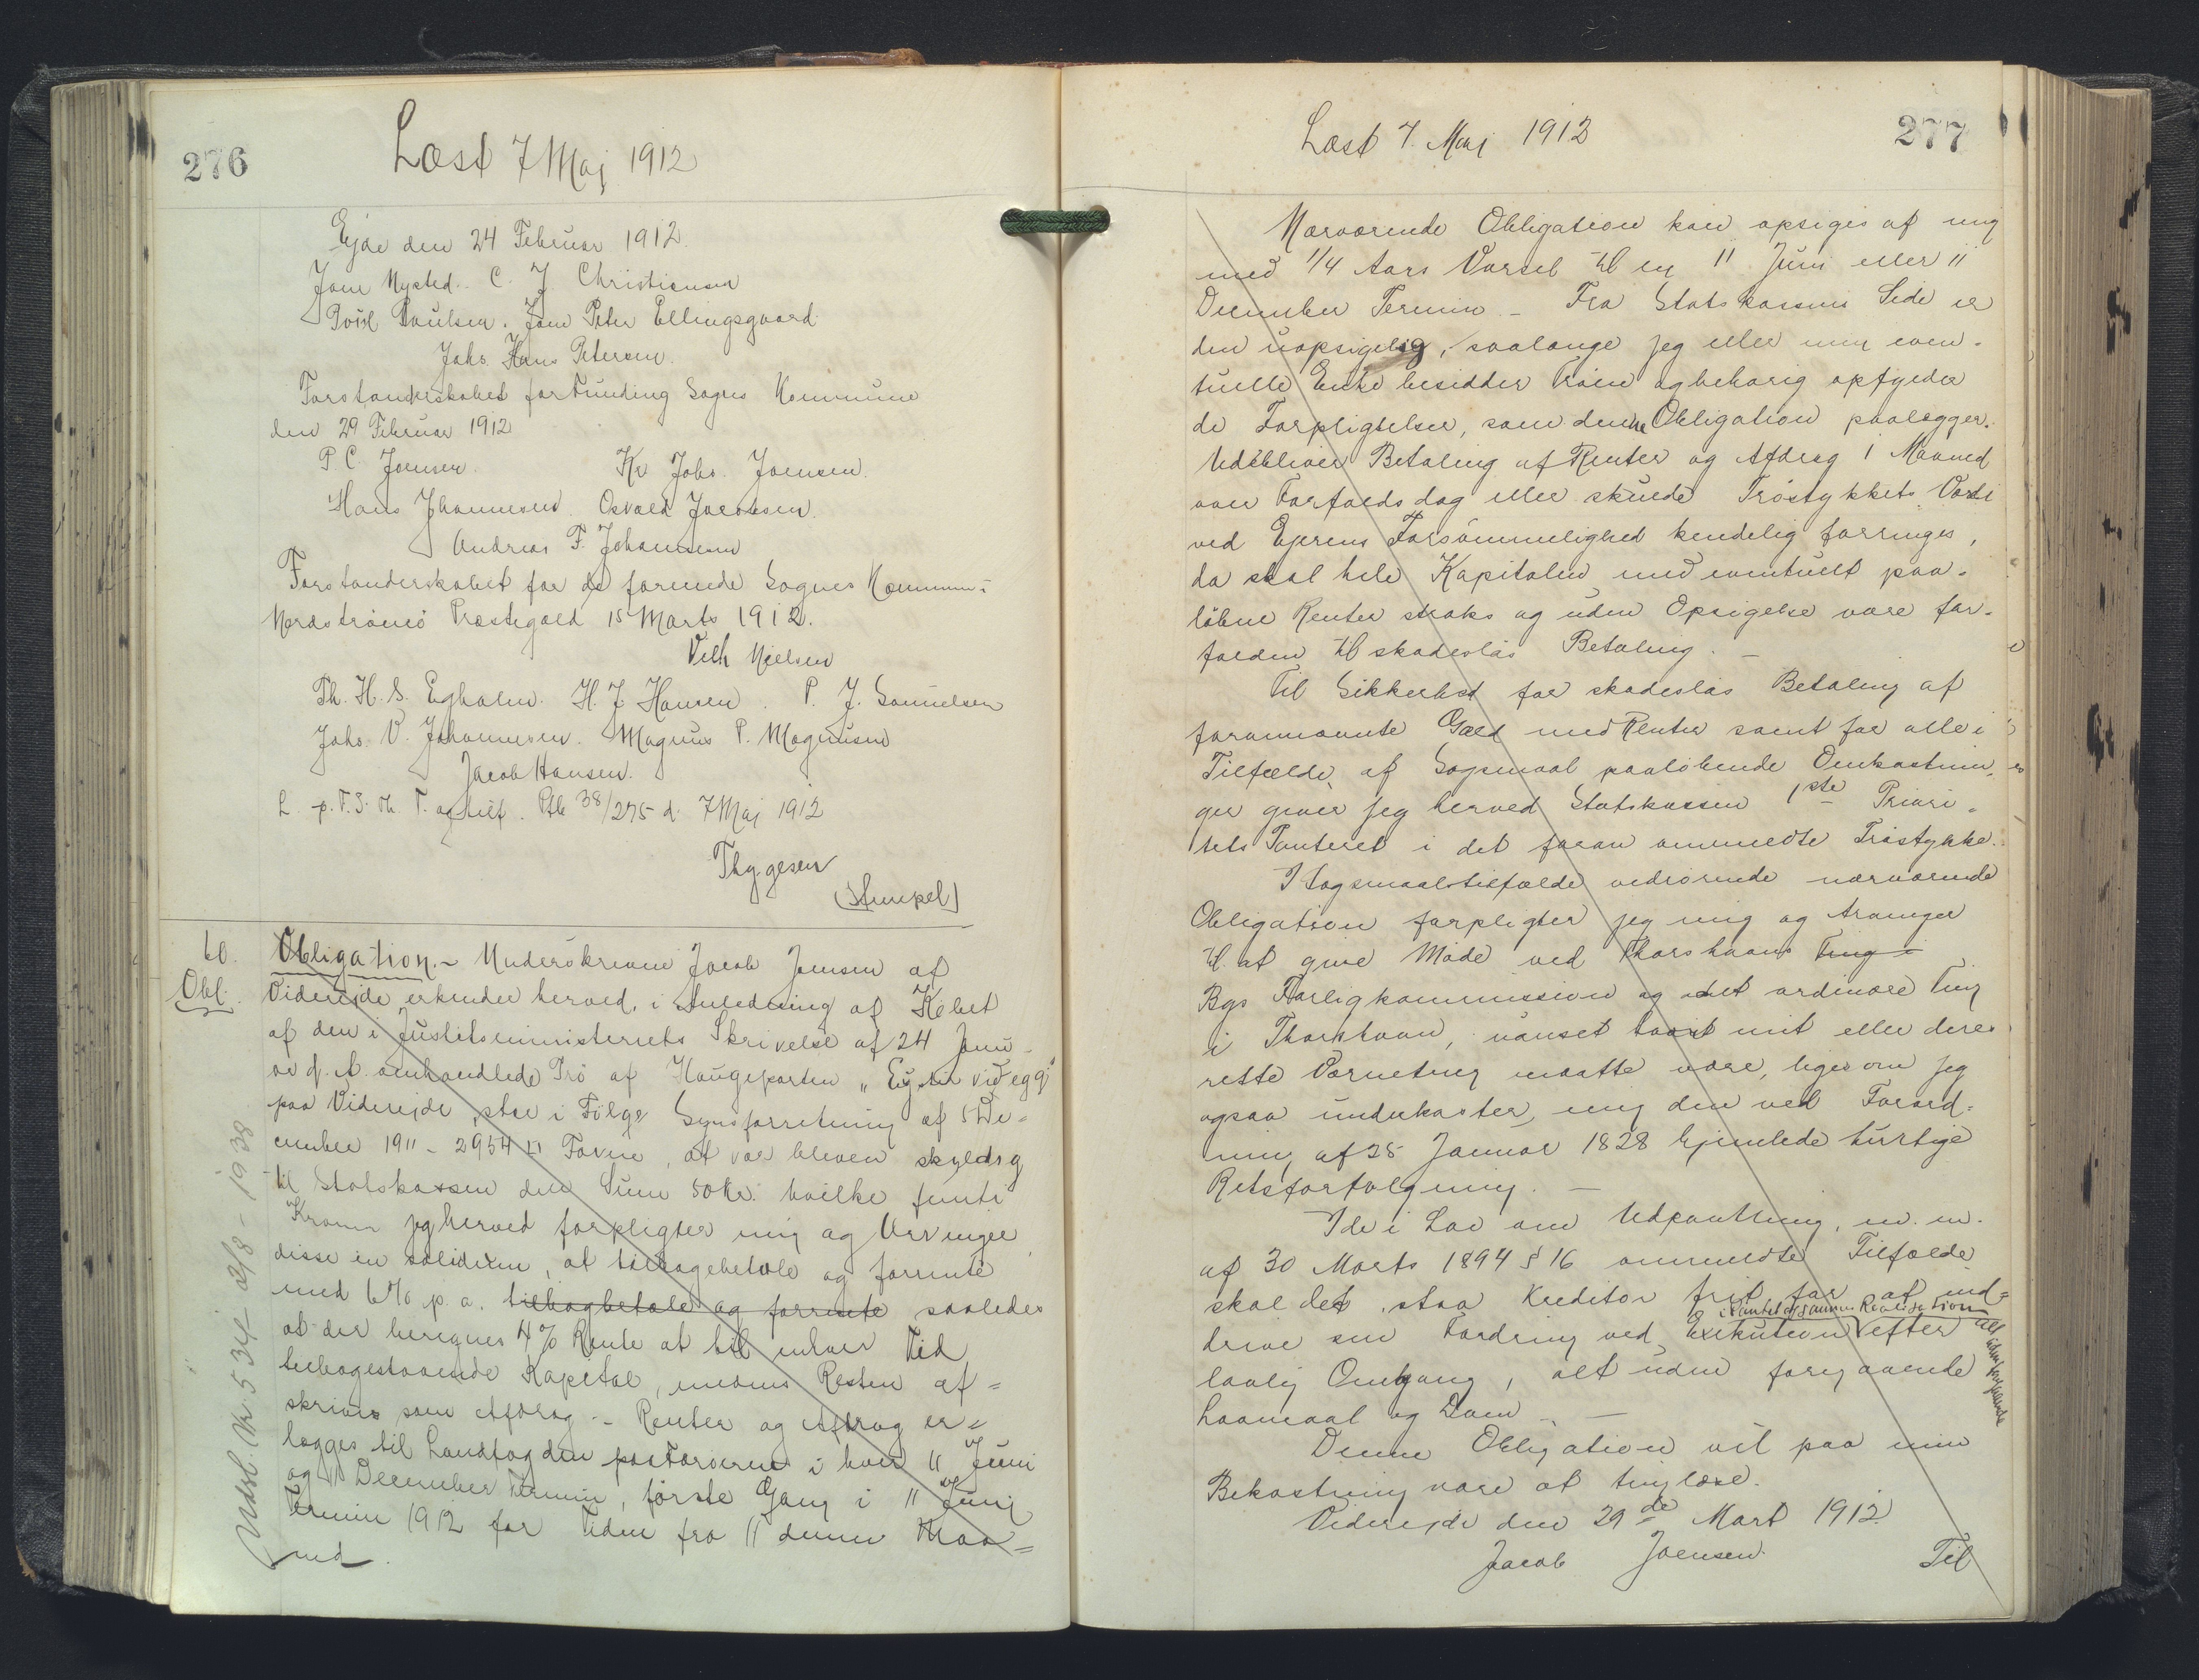 276
Læst 7 Maj 1912
Ejde den 24 Februar 1912.
Joen Nysted. C. J. Christiansen
Poul Poulsen. Joen Peter Ellingsgaard
Johs. Hans Petersen.
Forstanderskabet for Funding Sogns Kommune
den 29 Februar 1912
P C Joensen. Kr Johs. Joensen.
Hans Johannesen. Osvald Jacobsen.
Andreas F. Johannesen
Forstanderskabet for de forenede Sognes Kommun:
Nordstrømø Præstegald 15 Marts 1912.
Vilh Nielsen
Th. H. S. Egholm. H. J. Hansen. P. J. Samuelsen
Johs. V. Johannesen. Magnus P. Magnusen
Jacob Hansen.
L. p. T. S. Th. T. og tilf. Ptb 38/275 d. 7 Maj 1912
Thygesen
(Stempel)
60.
Obl.
Obligation.- Underskrevne Jacob Joensen af
Viderejde erkender herved, i Anledning af Købet
af den i Justitsministeriets Skrivelse af 24 Janu-
ar d. A. omhandlede Trø af Haugeparten "Eystur við egg"
paa Viderejde, stor i Følge Synsforretning af 5 De-
cember 1911 - 2954 □ Favne, at være bleven skyldig
til Statskassen den Sum 50 Kr. hvilke femti
Kroner jeg herved forpligter mig og Arvinger,
disse in solidum, at tilbagebetale og forrente
med 6% p. a. tilbagbetale og forrente saaledes
at der beregnes 4% Rente at til enhver Tid
tilbagestaaende Kapital, medens Resten af-
skrives som Afdrag.- Renter og Afdrag er-
lægges til Landfogden paa Færøerne i hver 11 Juni
og 11 December Termin, første Gang i 11 Juni
Termin 1912 for Tiden fra 11 denne Maa-
ned.
Udsl. Nr. 534 - 2/8 - 1938
277
Læst 7. Maj 1912
Nærværende Obligation kan opsiges af mig
med 1/4 Aars Varsel til en 11 Juni eller 11
December Termin. - Fra Statskassens Side er
den uopsigelig, saalænge jeg eller min even-
tuelle Enke besidder Trøen og behørig opfylder
de Forpligtelser, som denne Obligation paalægger.
Udebliver Betaling af Renter og Afdrag 1 Maaned
over Forfaldsdag eller skulde Trøstykkets Værdi
ved Ejerens Forsømmelighed kendelig forringes,
da skal hele Kapitalen med eventuelt paa-
løbne Renter straks og uden Opsigelse være for-
falden til skadesløs Betaling. -
Til Sikkerhed for skadesløs Betaling af
forannævnte Gæld med Renter samt for alle i
Tilfælde af Søgsmaal paaløbende Omkostnin-
ger giver jeg herved Statskassen 1ste Priori-
tets Panteret i det foran ommeldte Trøstykke.
I Søgsmaalstilfælde vedrørende nærværende
Obligation forpligter jeg mig og Arvinger
til at give Møde ved Thorshavns Ting i
Bys Forligkommission og det ordinære Ting
i Thorshavn, uanset hvort mit eller deres
rette Værneting maatte være, ligesom jeg
ogsaa underkaster mig den ved Forord-
ning af 25 Januar 1828 hjemlede hurtige
Retsforfølgning. -
I de i Lov om Udpantning, m. m.
af 30 Marts 1894 § 16 ommeldte Tilfælde
skal det staa Kreditor frit for at ind-
drive sin Fordring ved Exekution efter
i Pantet og sammes Realisation
lovlig Omgang, alt uden foregaaende
Lovmaal og Dom. -
Denne Obligation vil paa min
Bekostning være at tinglæse.
Viderejde den 29de Mart 1912
Jacob Joensen.
Til